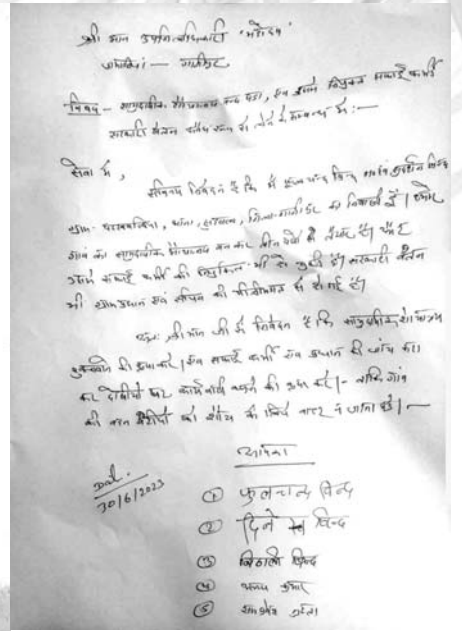 श्री मान उपजिलाधिकारी महोदय
जखनियां — गाजीपुर
विषय — सामुदायिक शौचालय बन्द पड़ा, एवं उसमें नियुक्त सफाई कर्मी
सरकारी वेतन अवैध रूप से लेने के सम्बन्ध में :—
सेवा में,
सविनय निवेदन है कि मैं फूलचन्द बिन्द
ग्राम- थाना, जिला-गाजीपुर का निवासी हूँ। हमारे
गांव का सामुदायिक शौचालय बन कर तीन वर्षों से तैयार है।
उसमें सफाई कर्मी की नियुक्ति भी हो चुकी है। सरकारी वेतन
भी ग्राम प्रधान एवं सचिव की मिलीभगत से
अतः श्रीमान जी से निवेदन है कि सामुदायिक शौचालय
खुलवाने की कृपा करें। एवं सफाई कर्मी एवं प्रधान की जांच करा
कर दोषियों पर कार्यवाही करने की कृपा करें।- ताकि गांव
की को शौच के लिये बाहर न जाना पड़े।—
Dat:-
30/6/2023
① फुलचन्द बिन्द
② दिनेश बिन्द
③ बिन्द
④ अजय कुमार
⑤